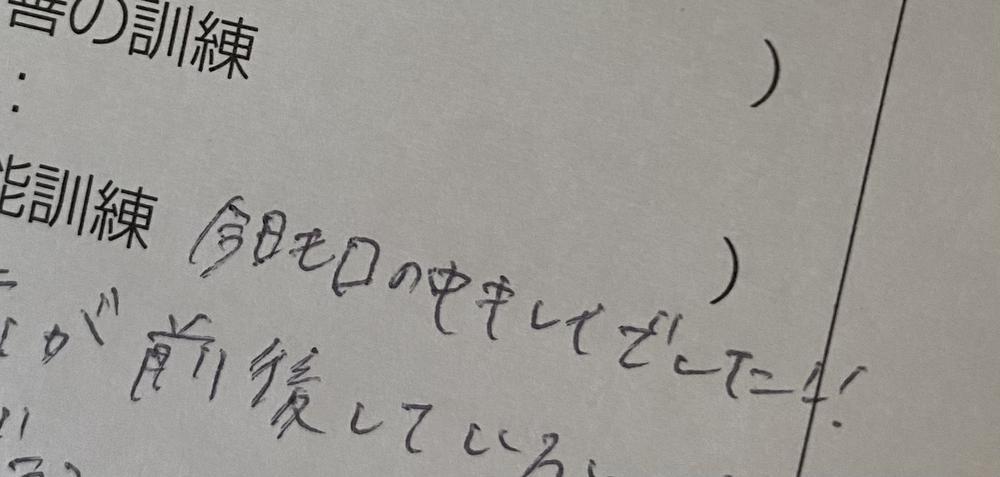 善の訓練 )
:
能訓練 今日も口の中キレイでした!! )
が前後している